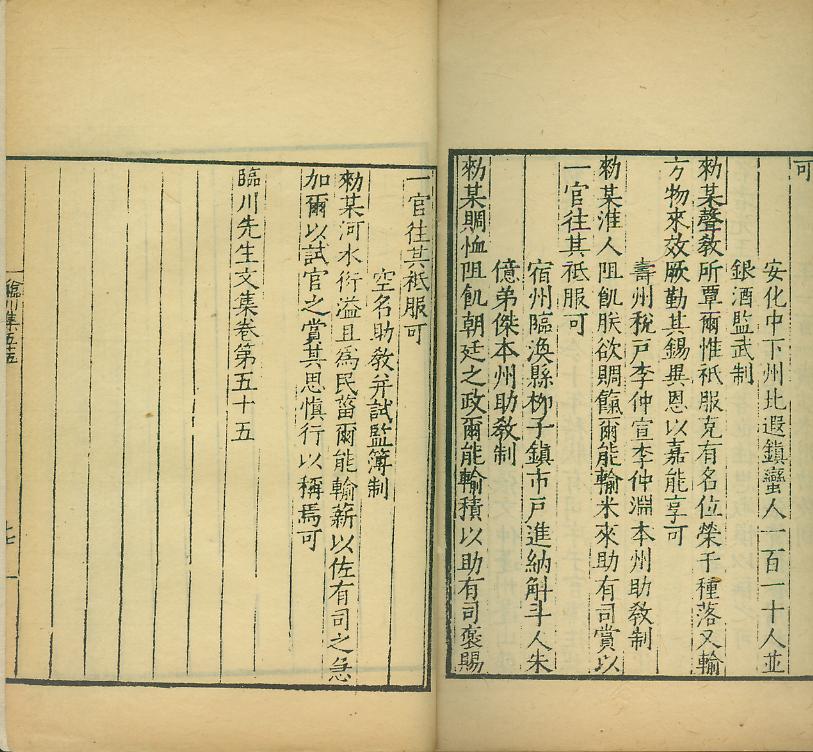 可
安化中下州北遐鎮蠻人一百一十人並
銀酒監武制
勑某聲敎所覃爾惟祇服克有名位榮于種落又輸
方物來效厥勤其錫異恩以嘉能享可
壽州稅戸李仲宣李仲淵本州助敎制
勑某淮人阻飢朕欲賙餼爾能輸米來助有司賞以
一官往其祇服可
宿州臨渙縣柳子鎮市戸進納斛斗人朱
億弟傑本州助敎制
勑某賙恤阻飢朝廷之政爾能輸積以助有司褒賜
一官往其祇服可
空名助敎并試監簿制
勑某河水衍溢且爲民菑爾能輸薪以佐有司之急
加爾以試官之賞其思愼行以稱焉可
臨川先生文集卷第五十五
臨川集五十五
七